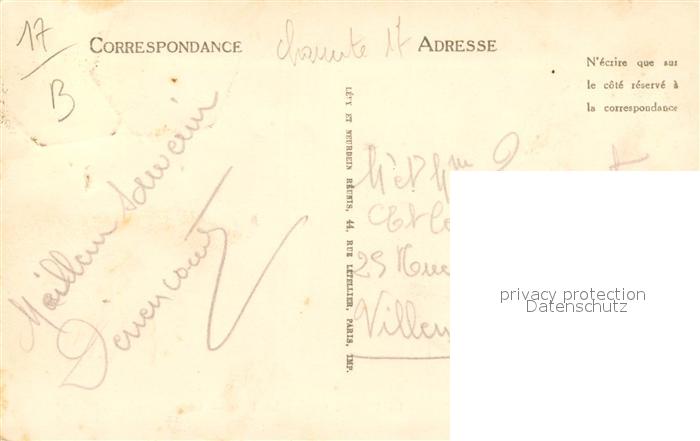 17
B
CORRESPONDANCE
charente 17
ADRESSE
N'écrire que sur
le côté réservé à
la correspondance
LÉVY ET NEURDEIN RÉUNIS, 44, RUE LETELLIER, PARIS, IMP.
Meilleur Souvenir
Mr et Mme
25 Rue
privacy protection
Datenschutz